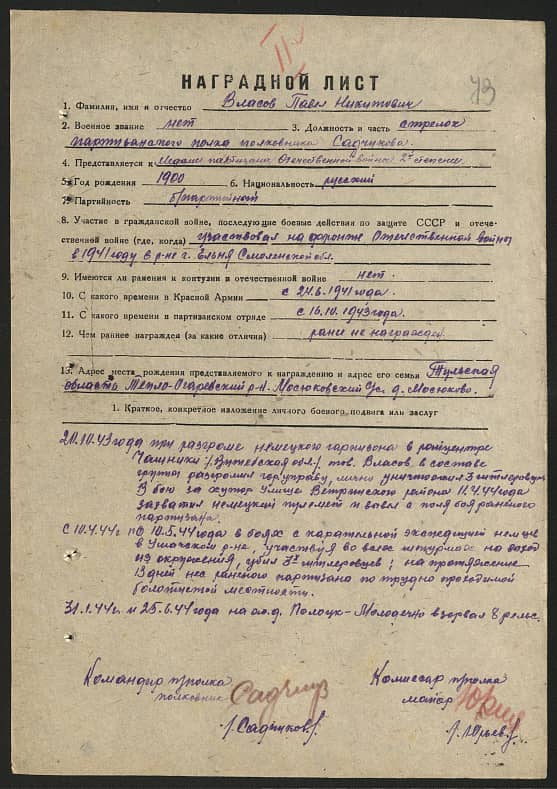 73
НАГРАДНОЙ ЛИСТ
1. Фамилия, имя и отчество Власов Павел Никитович
2. Военное звание нет 3. Должность и часть стрелок
партизанского полка полковника Садчикова
4. Представляется к Медали партизану Отечественной войны 2й степени
5. Год рождения 1900 6. Национальность русский
7. Партийность б/партейный
8. Участие в гражданской войне, последующие боевые действия по защите СССР и отече-
ственной войне (где, когда) участвовал на фронте Отечественной войны
в 1941 году в р-не г. Ельня Смоленской обл.
9. Имеются ли ранения и контузии в отечественной войне нет.
10. С какого времени в Красной Армии с 24.6.1941 года.
11. С какого времени в партизанском отряде с 16.10.1943 года.
12. Чем раннее награждался (за какие отличия) рание не награжден
13. Адрес места рождения представляемого к награждению и адрес его семьи Тульская
область Тепло-Огаревский р-н. Мосюковский с/с д. Мосюково.
1. Краткое, конкретное изложение личного боевого подвига или заслуг
20.10.43 года при разгроме немецкого гарнизона в райцентре
Чашники /Витебская обл./ тов. Власов в составе
группы разгромил гор.управу, лично уничтожил 3 гитлеровцев
В бою за хутор Улище Ветринского района 11.4.44 года
захватил немецкий пулемет и вывел с поля боя раненого
партизана.
С 10.4.44г. по 10.5.44 года в боях с карательной экспедицией немцев
в Ушачском р-не, участвуя во всех штурмах на выход
из окружения, убил 7х гитлеровцев; на протяжение
3 дней нес раненого партизана по трудно проходимой
болотистой местности.
31.1.44г. и 25.6.44 года на ж.д. Полоцк-Молодечно взорвал 8 рельс.
Командир полка
полковник Садчиков
/Садчиков/
Комиссар полка
майор Юрьев
/Юрьев/